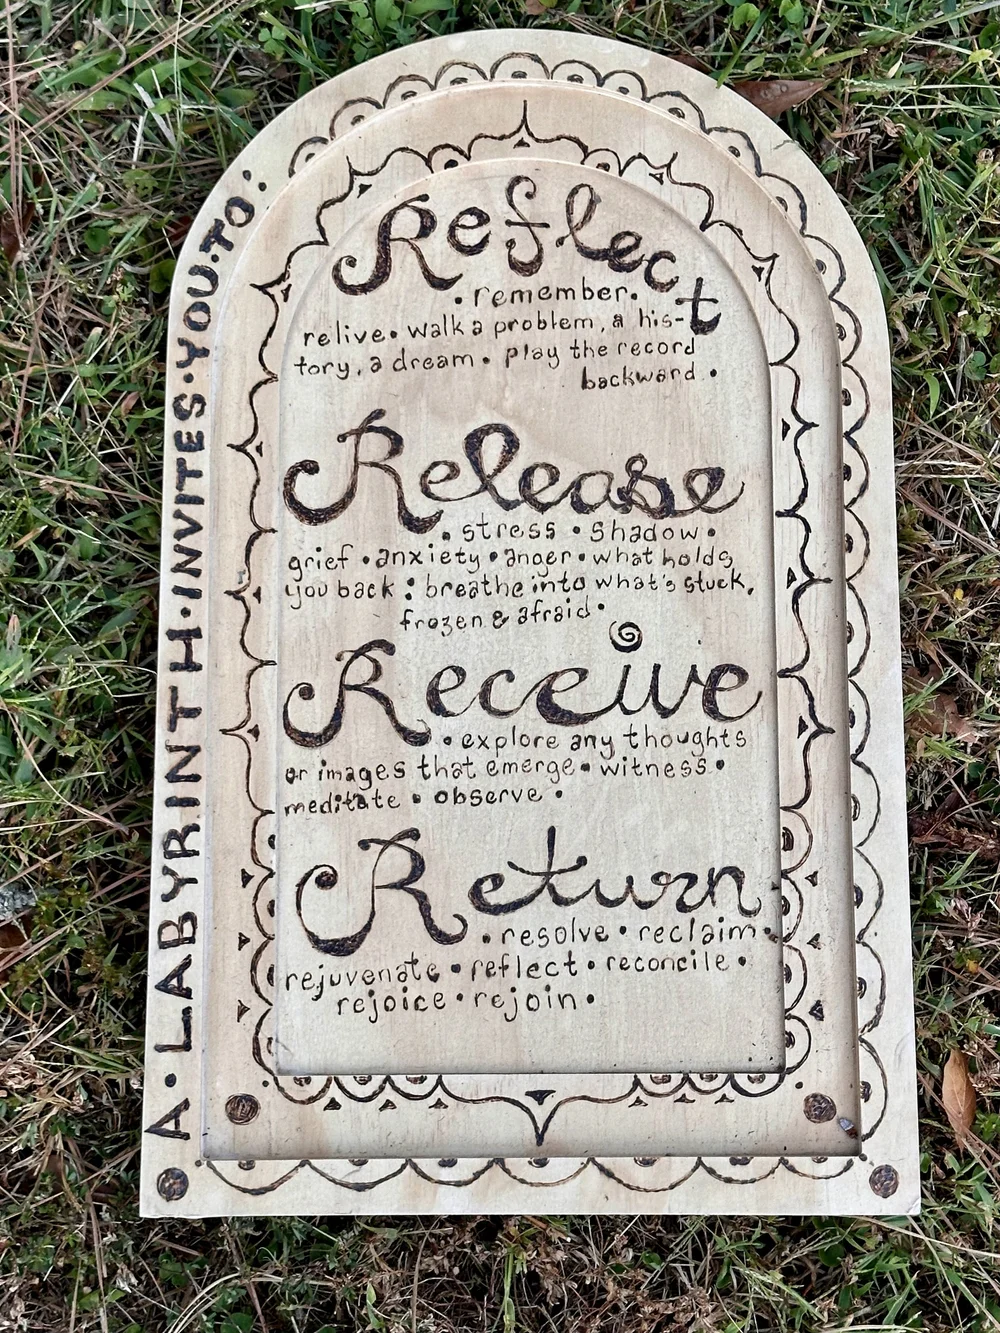 A•LABYRINTH•INVITES•YOU•TO:
Reflect
• remember •
relive • walk a problem, a his-
tory, a dream • play the record
backward •
Release
• stress • shadow •
grief • anxiety • anger • what holds
you back : breathe into what's stuck,
frozen & afraid •
Receive
• explore any thoughts
or images that emerge • witness •
meditate • observe •
Return
• resolve • reclaim •
rejuvenate • reflect • reconcile •
rejoice • rejoin •